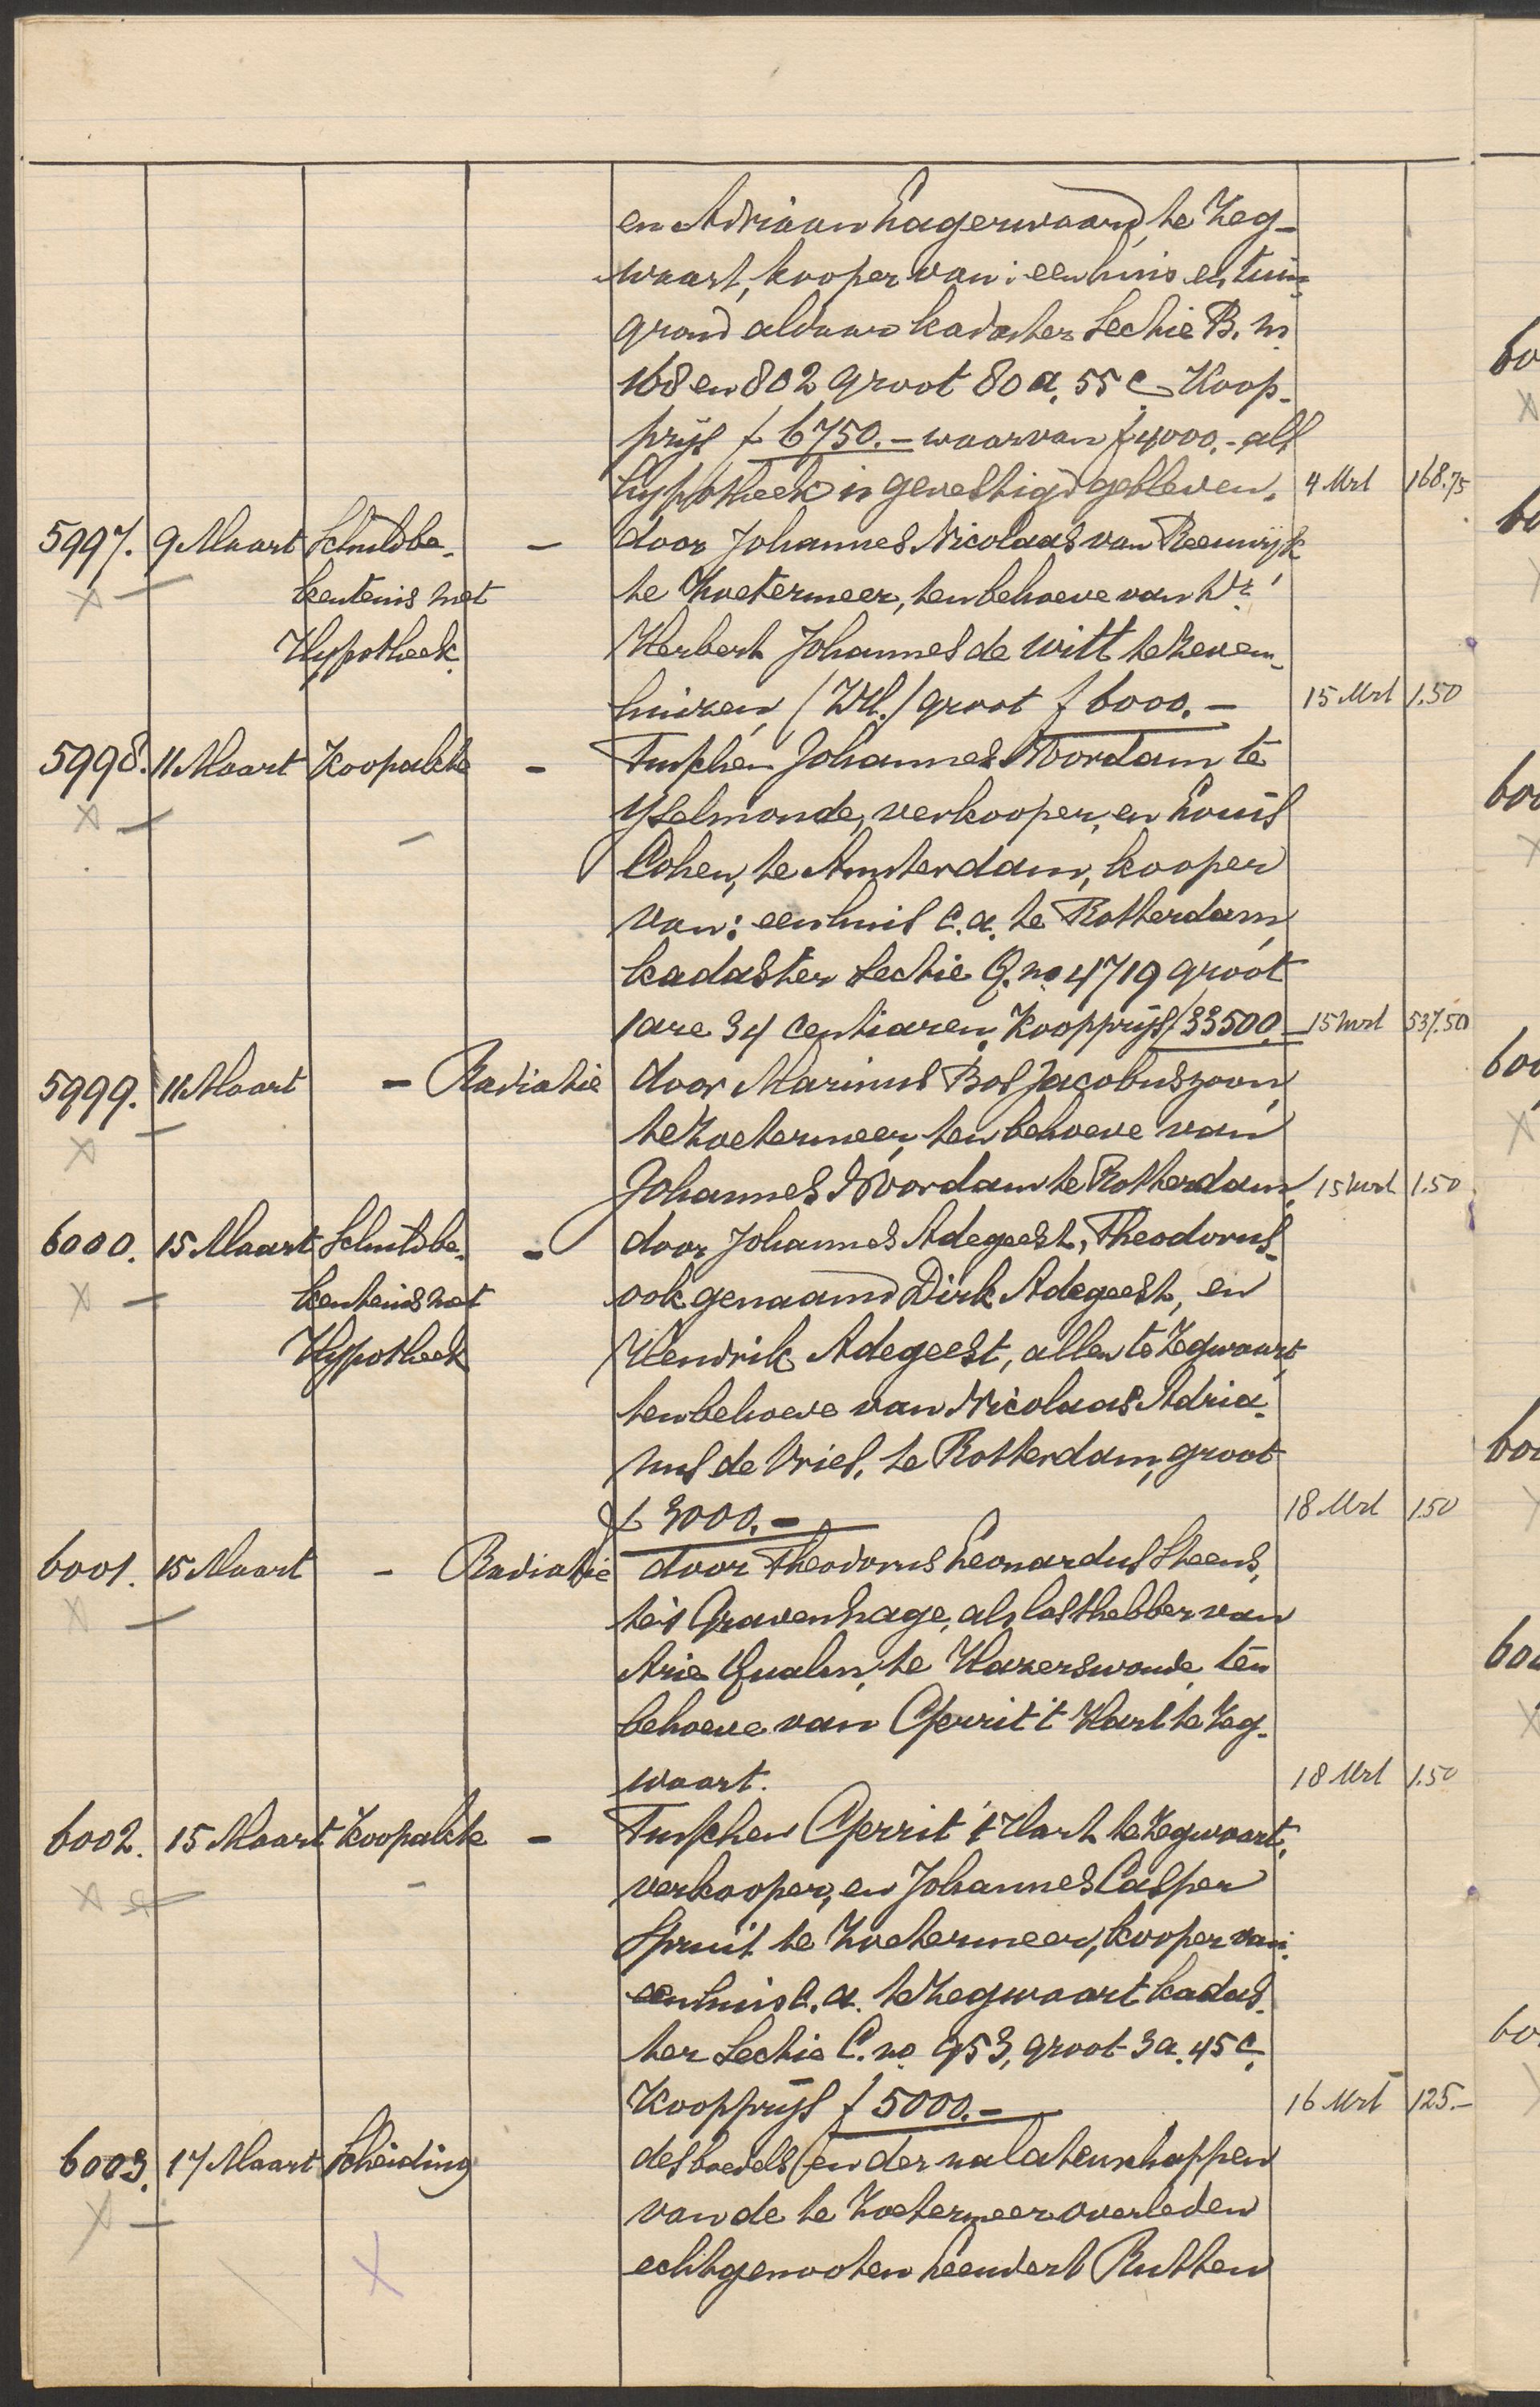 en Adriaan Lagerwaard, te Zeg-
waart, kooper van: een huis en tuin-
grond aldaar kadaster Sectie B. no
168 en 802 groot 80 a. 55 c. Koop-
prijs f 6750.- waarvan f 4000.- als
hypotheek is gevestigd gebleven. 4 Mrt 168.75
5997. 9 Maart Schuldbe- - door Johannes Nicolaas van Reeuwijk
kentenis met te Zoetermeer, ten behoeve van Dr.
Hypotheek. Herbert Johannes de Witt te Zeven-
huizen (ZH.) groot f 6000.- 15 Mrt 1.50
5998. 11 Maart Koopakte - Tusschen Johannes Noordam te
IJselmonde, verkooper, en Louis
Cohen, te Amsterdam, kooper
van: een huis c.a. te Rotterdam
kadaster Sectie Q. no 4719 groot
1 are 34 centiaren. Koopprijs f 33500.- 15 Mrt 537.50
5999. 11 Maart - Radiatie door Marinus Bos Jacobuszoon,
te Zoetermeer, ten behoeve van
Johannes Noordam te Rotterdam. 15 Mrt 1.50
6000. 15 Maart Schuldbe- - door Johannes Adegeest, Theodorus-
kentenis met ook genaamd Dirk Adegeest, en
Hypotheek Hendrik Adegeest, allen te Zegwaart,
ten behoeve van Nicolaas Adria-
nus de Vries, te Rotterdam, groot
f 3000.- 18 Mrt 1.50
6001. 15 Maart - Radiatie door Theodorus Leonardus Steens,
te 's Gravenhage, als lasthebber van
Arie Qualm, te Hazerswoude, ten
behoeve van Gerrit 't Hart te Zeg-
waart. 18 Mrt 1.50
6002. 15 Maart Koopakte - Tusschen Gerrit 't Hart te Zegwaart,
verkooper, en Johannes Casper
Spruit te Zoetermeer, kooper van:
een huis c.a. te Zegwaart kadas-
ter Sectie C. no 953, groot 3 a. 45 c.
Koopprijs f 5000.- 16 Mrt 125.-
6003. 17 Maart Scheiding des boedels en der nalatenschappen
van de te Zoetermeer overleden
echtgenooten Leendert Rutten